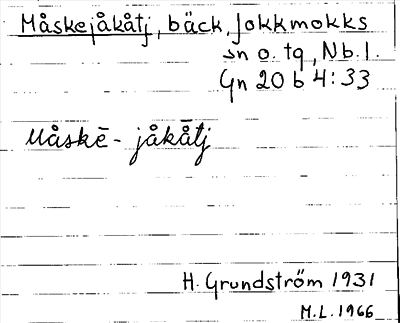 Måskejåkåtj, bäck, Jokkmokks
sn o. tg, Nb. l.
Gn 20 b 4:33
Måskē- jåkå̄tj
H. Grundström 1931
M.L. 1966